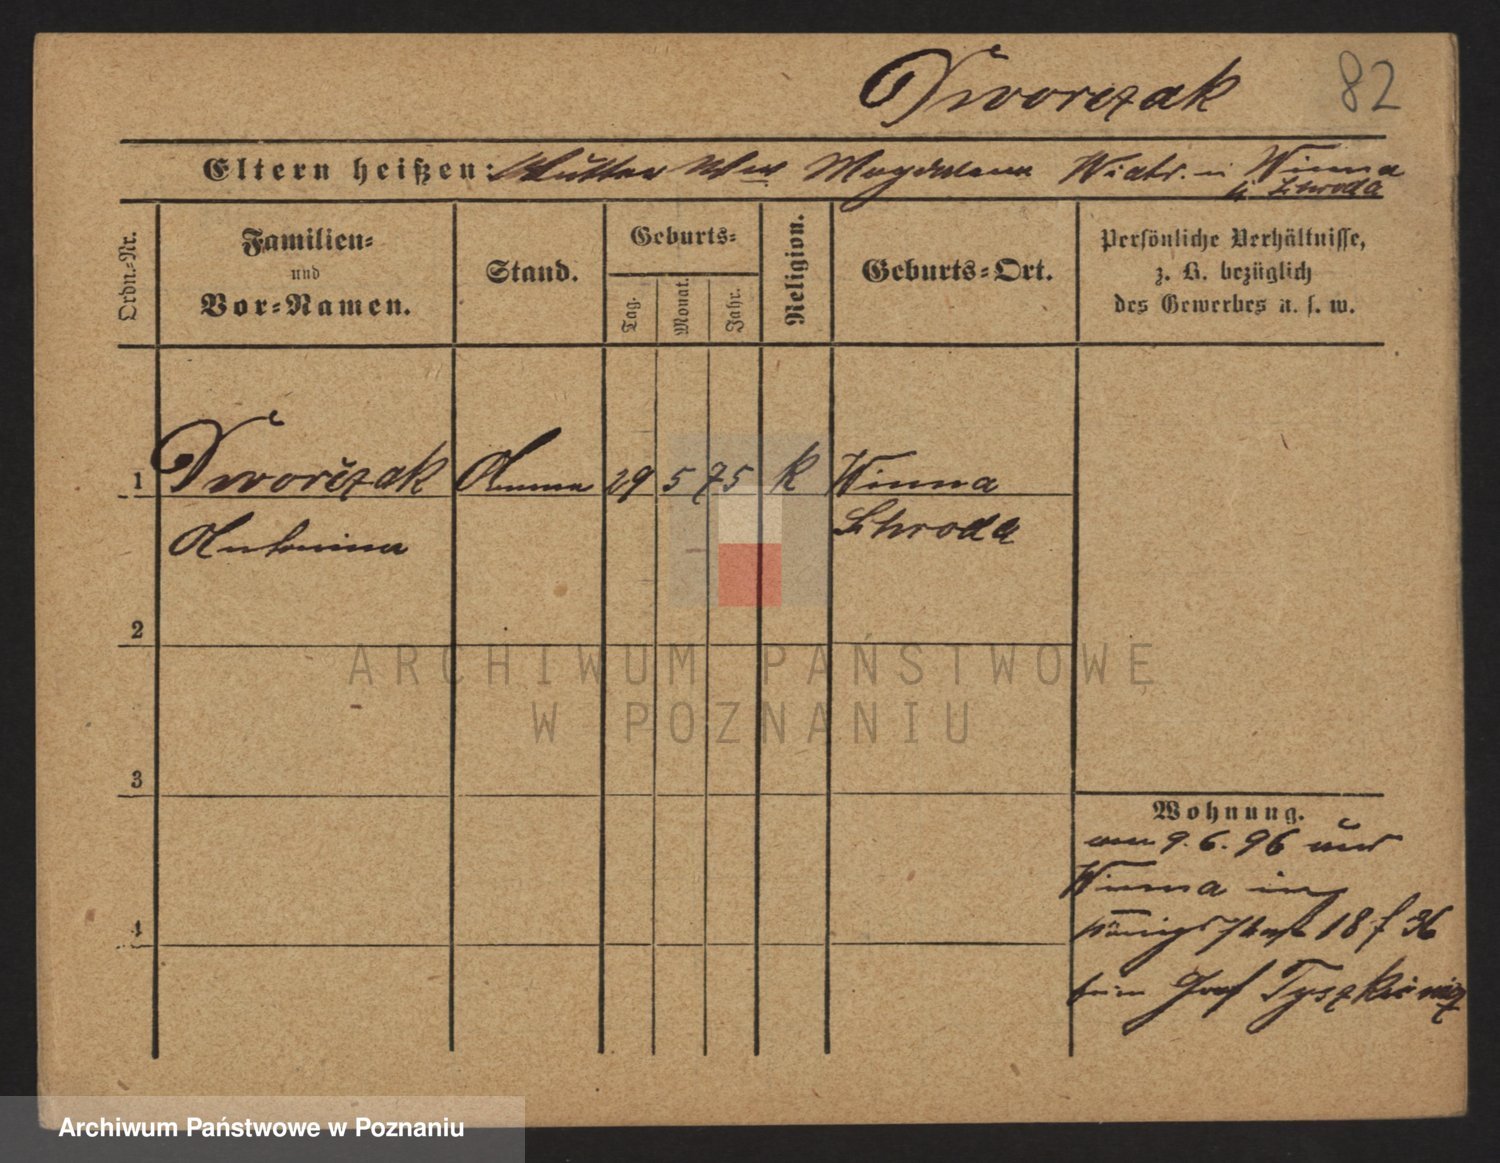 Dworczak 82
Eltern heißen: Mutter Ww Magdalena Wiatr. in Winna
Kr. Schroda
Ordn.-Nr.
Familien-
und
Vor-Namen.
Stand.
Geburts-
Tag.
Monat.
Jahr.
Religion.
Geburts-Ort.
Persönliche Verhältnisse,
z. B. bezüglich
des Gewerbes u. s. w.
1 Dworczak Amme 29 5 75 k Winna
Antonina Schroda
2
ARCHIWUM PAŃSTWOWE
W POZNANIU
3
Wohnung.
am 9. 6. 96 aus
Winna in
Königsplatz 18
4
beim Graf Tyszkiewicz
Archiwum Państwowe w Poznaniu